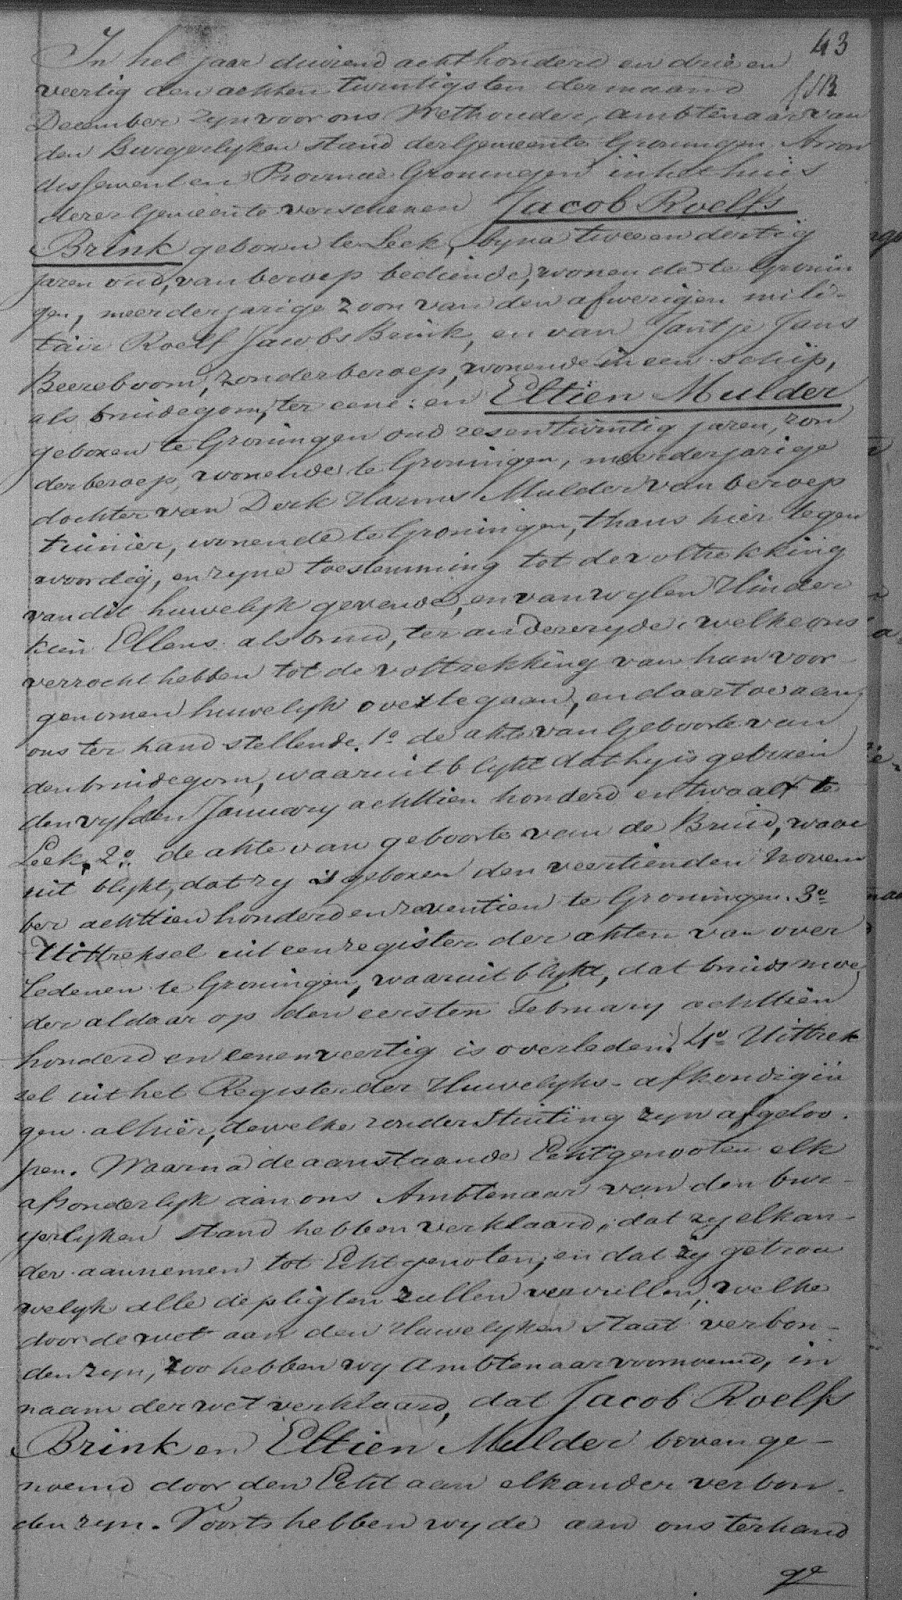 43
In het jaar duizend achthonderd en drie en
veertig den achten twintigsten der maand
December zyn voor ons Wethouder, Ambtenaar van
den Burgerlyken stand der Gemeente Groningen, Arron
dissement en Provincie Groningen in het huis
dezer Gemeente verschenen Jacob Roelfs
Brink geboren te Leek, byna twee en dertig
jaren oud, van beroep bediende, wonende te Gronin
gen, meerderjarige zoon van den afwezigen mili-
tair Roelf Jacobs Brink, en van Jantje Jans
Beereboom, zonder beroep, wonende in een schip,
als bruidegom, ter eene: en Eltien Mulder
geboren te Groningen oud zesentwintig jaren, zon
der beroep, wonende te Groningen, meerderjarige
dochter van Derk Harms Mulder van beroep
tuinier, wonende te Groningen, thans hier tegen
woordig, en zyne toestemming tot de voltrekking
van dit huwelyk gevende, en van wylen Hinder
kien Ellens als bruid, ter andere zyde, welke ons
verzocht hebben tot de voltrekking van hun voor-
genomen huwelyk over te gaan, en daartoe aan
ons ter hand stellende. 1o de akte van Geboorte van
den bruidegom, waaruit blykt dat hy is geboren
den vyfden January achttien honderd en twaalf te
Leek. 2o. de akte van geboorte van de Bruid, waar
uit blykt, dat zy is geboren den veertienden Novem
ber achttien honderd en zeventien te Groningen. 3o
Uittreksel uit een register der akten van over
ledenen te Groningen, waaruit blykt, dat bruids moe
der aldaar op den eersten February achttien
honderd en eenenveertig is overleden. 4o Uittrek
sel uit het Register der Huwelyks-afkondigin
gen alhier, dewelke zonder Stuiting zyn afgeloo-
pen. Waarna de aanstaande Echtgenooten elk
afzonderlyk aan ons Ambtenaar van den bur-
gerlyken stand hebben verklaard, dat zy elkan-
der aannemen tot Echtgenoten, en dat zy getrou
welyk alle de pligten zullen vervullen, welke
door de wet aan den Huwelyken staat verbon-
den zyn, zoo hebben wy Ambtenaar voornoemd, in
naam der wet verklaard, dat Jacob Roelfs
Brink en Eltien Mulder boven ge-
noemd door den Echt aan elkander verbon-
den zyn. Voorts hebben wy de aan ons ter hand
ge